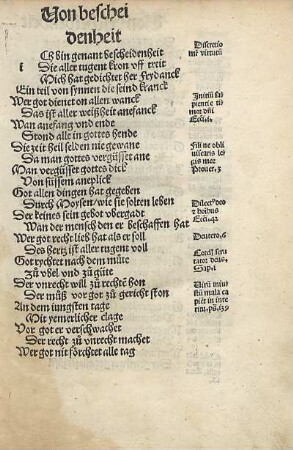 Von beschei
denheit
Ch bin genant bescheidenheit
i Die aller tugent kron vff treit
Mich hat gedichtet her Freydanck
Ein teil von synnen die seind kranck
Wer got dienet on allen wanck
Das ist aller weißheit anefanck
Wan anefang vnd ende
Stond alle in gottes hende
Die zeit heil selden nie gewane
Da man gottes vergüsset ane
Man vergüsset gottes dick
Von süssem aneplick
Got allen dingen hat gegeben
Durch Moysen/ wie sie solten leben
Der keines sein gebot vbergadt
Wan der menschden er beschaffen hat
Wer got recht lieb hat als er soll
Des hertz ist aller tugent voll
Got rychtet nach dem můte
Zů vbel vnd zů gůte
Der vnrecht will zů rechte hon
Der můß vor got zů gericht ston
An dem iungsten tage
Mit yemerlicher clage
Vor got er verschwachet
Der recht zů vnrecht machet
Wer got nit förchtet alle tag
Discretio
mr̄ virtutū
Initiū sa
pientie ti
mor dñi
Eccli.j.
Fili ne obli
uiscaris le
gis mee
Prouer.3
Deutero.6
Sap.j